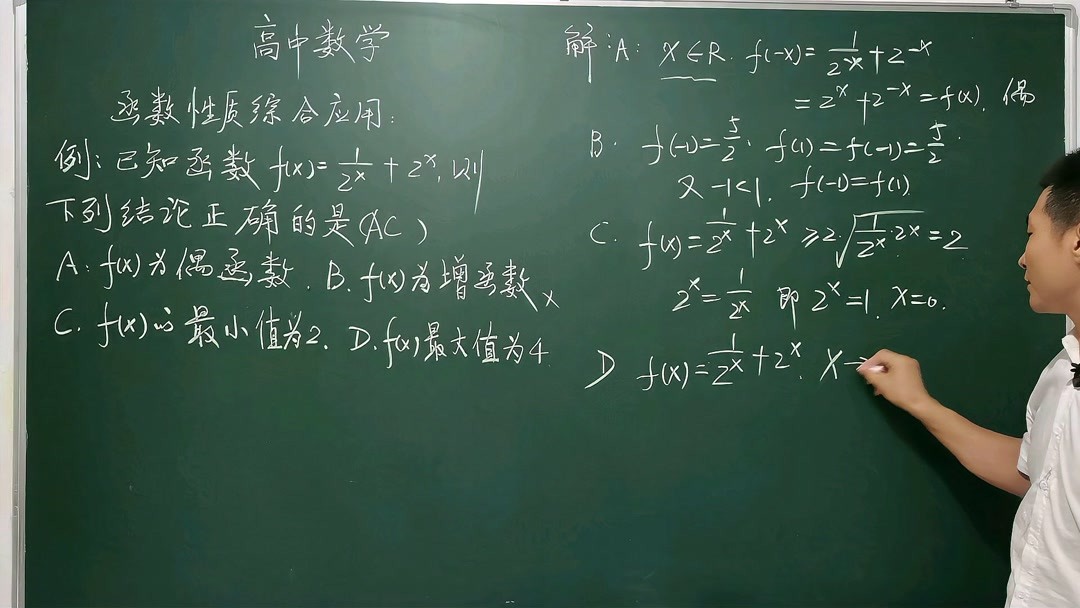 高中数学
函数性质综合应用:
例:已知函数 f(x)=1/2^x+2^x,则
下列结论正确的是(AC)
A:f(x)为偶函数. B.f(x)为增函数 ×
C.f(x)的最小值为2. D.f(x)最大值为4
解:A: x∈R. f(-x)=1/2^-x+2^-x
=2^x+2^-x=f(x). 偶
B. f(-1)=5/2. f(1)=f(-1)=5/2.
又 -1<1. f(-1)=f(1)
C. f(x)=1/2^x+2^x≥2√(1/2^x·2^x)=2
2^x=1/2^x 即 2^x=1. x=0.
D f(x)=1/2^x+2^x. x→